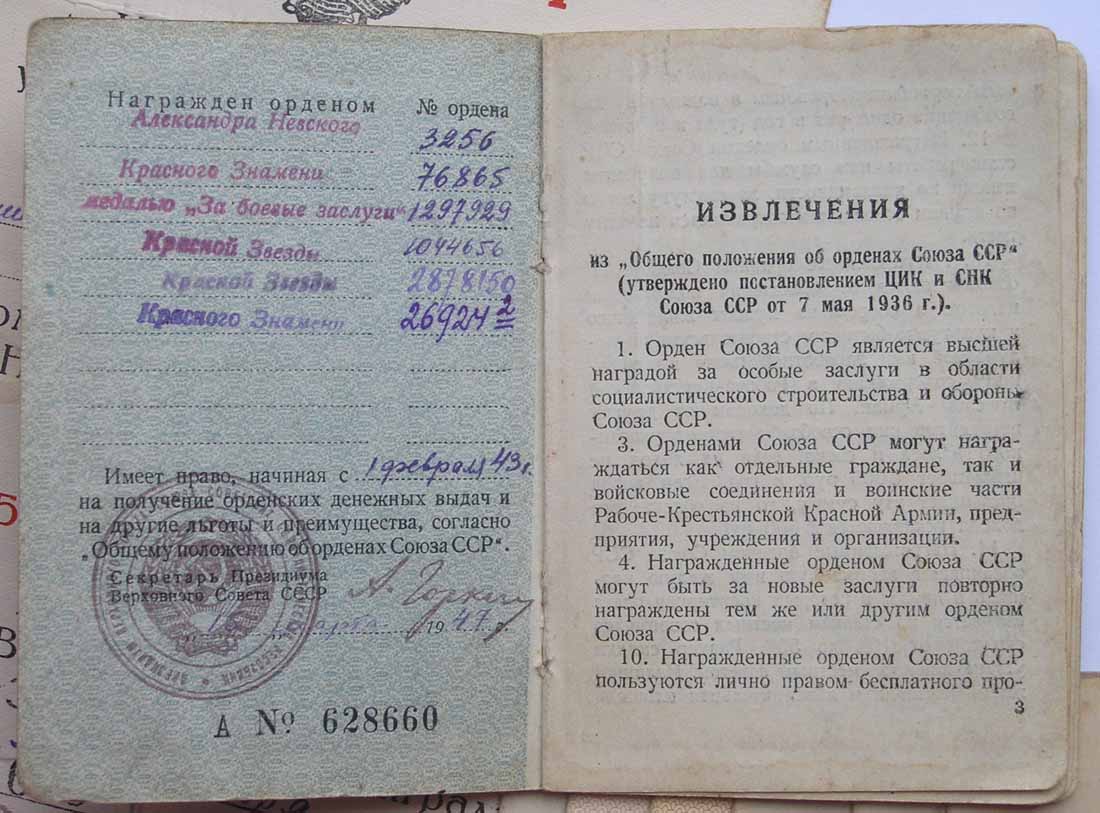 Награжден орденом № ордена
Александра Невского 3256
Красного Знамени 76865
медалью „За боевые заслуги“ 1297929
Красной Звезды 1044656
Красной Звезды 2878150
Красного Знамени 26924 2
Имеет право, начиная с 1 февраля 43 г.
на получение орденских денежных выдач и
на другие льготы и преимущества, согласно
„Общему положению об орденах Союза ССР“.
Секретарь Президиума
Верховного Совета СССР А. Горкин
марта 1947 г.
А № 628660
ИЗВЛЕЧЕНИЯ
из „Общего положения об орденах Союза ССР“
(утверждено постановлением ЦИК и СНК
Союза ССР от 7 мая 1936 г.).
1. Орден Союза ССР является высшей
наградой за особые заслуги в области
социалистического строительства и обороны
Союза ССР.
3. Орденами Союза ССР могут награ-
ждаться как отдельные граждане, так и
войсковые соединения и воинские части
Рабоче-Крестьянской Красной Армии, пред-
приятия, учреждения и организации.
4. Награжденные орденом Союза ССР
могут быть за новые заслуги повторно
награждены тем же или другим орденом
Союза ССР.
10. Награжденные орденом Союза ССР
пользуются лично правом бесплатного про-
3